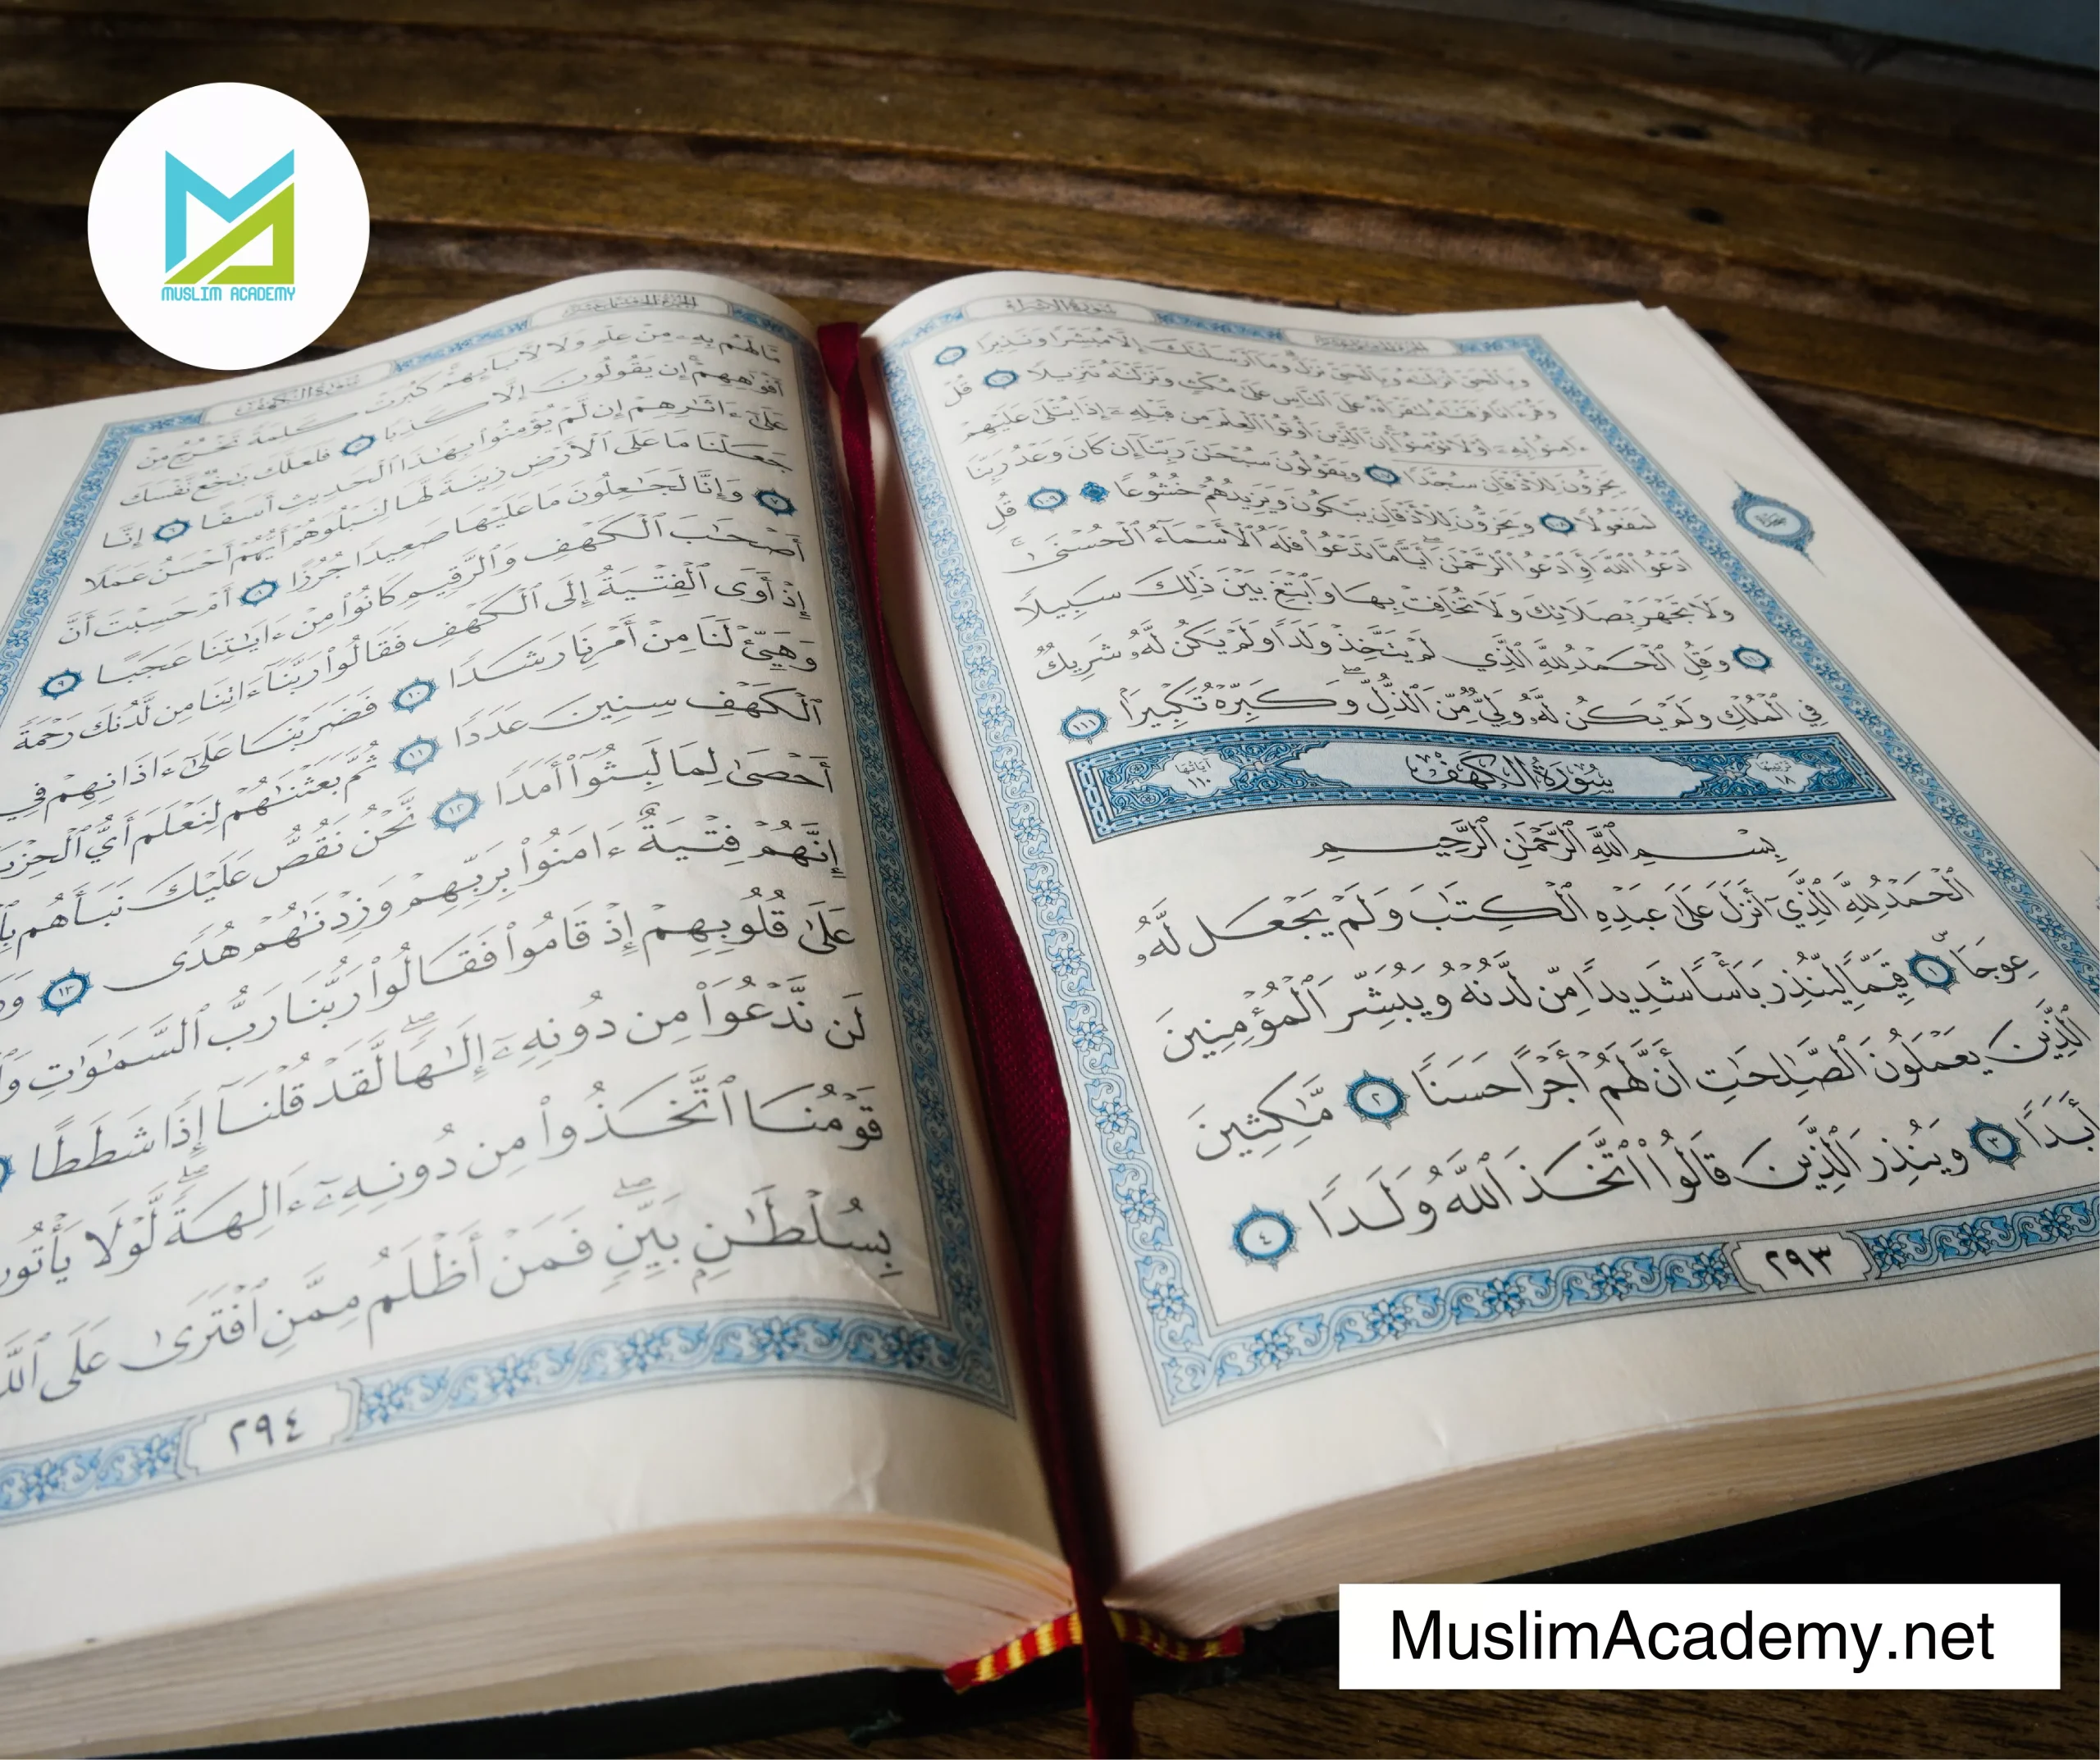 MUSLIM ACADEMY
سورة الإسراء
وَبِٱلْحَقِّ أَنزَلْنَٰهُ وَبِٱلْحَقِّ نَزَلَ وَمَآ أَرْسَلْنَٰكَ إِلَّا مُبَشِّرًا وَنَذِيرًا ١٠٥
وَقُرْءَانًا فَرَقْنَٰهُ لِتَقْرَأَهُۥ عَلَى ٱلنَّاسِ عَلَىٰ مُكْثٍ وَنَزَّلْنَٰهُ تَنزِيلًا ١٠٦ قُلْ
ءَامِنُوا۟ بِهِۦٓ أَوْ لَا تُؤْمِنُوٓا۟ إِنَّ ٱلَّذِينَ أُوتُوا۟ ٱلْعِلْمَ مِن قَبْلِهِۦٓ إِذَا يُتْلَىٰ عَلَيْهِمْ
يَخِرُّونَ لِلْأَذْقَانِ سُجَّدًا ١٠٧ وَيَقُولُونَ سُبْحَٰنَ رَبِّنَآ إِن كَانَ وَعْدُ رَبِّنَا
لَمَفْعُولًا ١٠٨ وَيَخِرُّونَ لِلْأَذْقَانِ يَبْكُونَ وَيَزِيدُهُمْ خُشُوعًا ١٠٩ قُلِ
ٱدْعُوا۟ ٱللَّهَ أَوِ ٱدْعُوا۟ ٱلرَّحْمَٰنَ أَيًّا مَّا تَدْعُوا۟ فَلَهُ ٱلْأَسْمَآءُ ٱلْحُسْنَىٰ
وَلَا تَجْهَرْ بِصَلَاتِكَ وَلَا تُخَافِتْ بِهَا وَٱبْتَغِ بَيْنَ ذَٰلِكَ سَبِيلًا
١١٠ وَقُلِ ٱلْحَمْدُ لِلَّهِ ٱلَّذِي لَمْ يَتَّخِذْ وَلَدًا وَلَمْ يَكُن لَّهُۥ شَرِيكٌ
فِي ٱلْمُلْكِ وَلَمْ يَكُن لَّهُۥ وَلِيٌّ مِّنَ ٱلذُّلِّ وَكَبِّرْهُ تَكْبِيرًا ١١١
ترتيبها ١٨ سُورَةُ الكَهْفِ آياتها ١١٠
بِسْمِ ٱللَّهِ ٱلرَّحْمَٰنِ ٱلرَّحِيمِ
ٱلْحَمْدُ لِلَّهِ ٱلَّذِيٓ أَنزَلَ عَلَىٰ عَبْدِهِ ٱلْكِتَٰبَ وَلَمْ يَجْعَل لَّهُۥ
عِوَجَا ١ قَيِّمًا لِّيُنذِرَ بَأْسًا شَدِيدًا مِّن لَّدُنْهُ وَيُبَشِّرَ ٱلْمُؤْمِنِينَ
ٱلَّذِينَ يَعْمَلُونَ ٱلصَّٰلِحَٰتِ أَنَّ لَهُمْ أَجْرًا حَسَنًا ٢ مَّٰكِثِينَ
أَبَدًا ٣ وَيُنذِرَ ٱلَّذِينَ قَالُوا۟ ٱتَّخَذَ ٱللَّهُ وَلَدًا ٤
٢٩٣
سورة الكهف
مَّا لَهُم بِهِۦ مِنْ عِلْمٍ وَلَا لِأٓبَآئِهِمْ كَبُرَتْ كَلِمَةً تَخْرُجُ مِنْ
أَفْوَٰهِهِمْ إِن يَقُولُونَ إِلَّا كَذِبًا ٥ فَلَعَلَّكَ بَٰخِعٌ نَّفْسَكَ
عَلَىٰٓ ءَاثَٰرِهِمْ إِن لَّمْ يُؤْمِنُوا۟ بِهَٰذَا ٱلْحَدِيثِ أَسَفًا ٦ إِنَّا
جَعَلْنَا مَا عَلَى ٱلْأَرْضِ زِينَةً لَّهَا لِنَبْلُوَهُمْ أَيُّهُمْ أَحْسَنُ عَمَلًا
٧ وَإِنَّا لَجَٰعِلُونَ مَا عَلَيْهَا صَعِيدًا جُرُزًا ٨ أَمْ حَسِبْتَ أَنَّ
أَصْحَٰبَ ٱلْكَهْفِ وَٱلرَّقِيمِ كَانُوا۟ مِنْ ءَايَٰتِنَا عَجَبًا ٩
إِذْ أَوَى ٱلْفِتْيَةُ إِلَى ٱلْكَهْفِ فَقَالُوا۟ رَبَّنَآ ءَاتِنَا مِن لَّدُنكَ رَحْمَةً
وَهَيِّئْ لَنَا مِنْ أَمْرِنَا رَشَدًا ١٠ فَضَرَبْنَا عَلَىٰٓ ءَاذَانِهِمْ فِي
ٱلْكَهْفِ سِنِينَ عَدَدًا ١١ ثُمَّ بَعَثْنَٰهُمْ لِنَعْلَمَ أَيُّ ٱلْحِزْبَ
أَحْصَىٰ لِمَا لَبِثُوٓا۟ أَمَدًا ١٢ نَّحْنُ نَقُصُّ عَلَيْكَ نَبَأَهُم
إِنَّهُمْ فِتْيَةٌ ءَامَنُوا۟ بِرَبِّهِمْ وَزِدْنَٰهُمْ هُدًى ١٣
عَلَىٰ قُلُوبِهِمْ إِذْ قَامُوا۟ فَقَالُوا۟ رَبُّنَا رَبُّ ٱلسَّمَٰوَٰتِ
لَن نَّدْعُوَا۟ مِن دُونِهِۦٓ إِلَٰهًا لَّقَدْ قُلْنَآ إِذًا شَطَطًا
قَوْمُنَا ٱتَّخَذُوا۟ مِن دُونِهِۦٓ ءَالِهَةً لَّوْلَا يَأْتُو
بِسُلْطَٰنٍۭ بَيِّنٍ فَمَنْ أَظْلَمُ مِمَّنِ ٱفْتَرَىٰ عَلَى
٢٩٤
MuslimAcademy.net